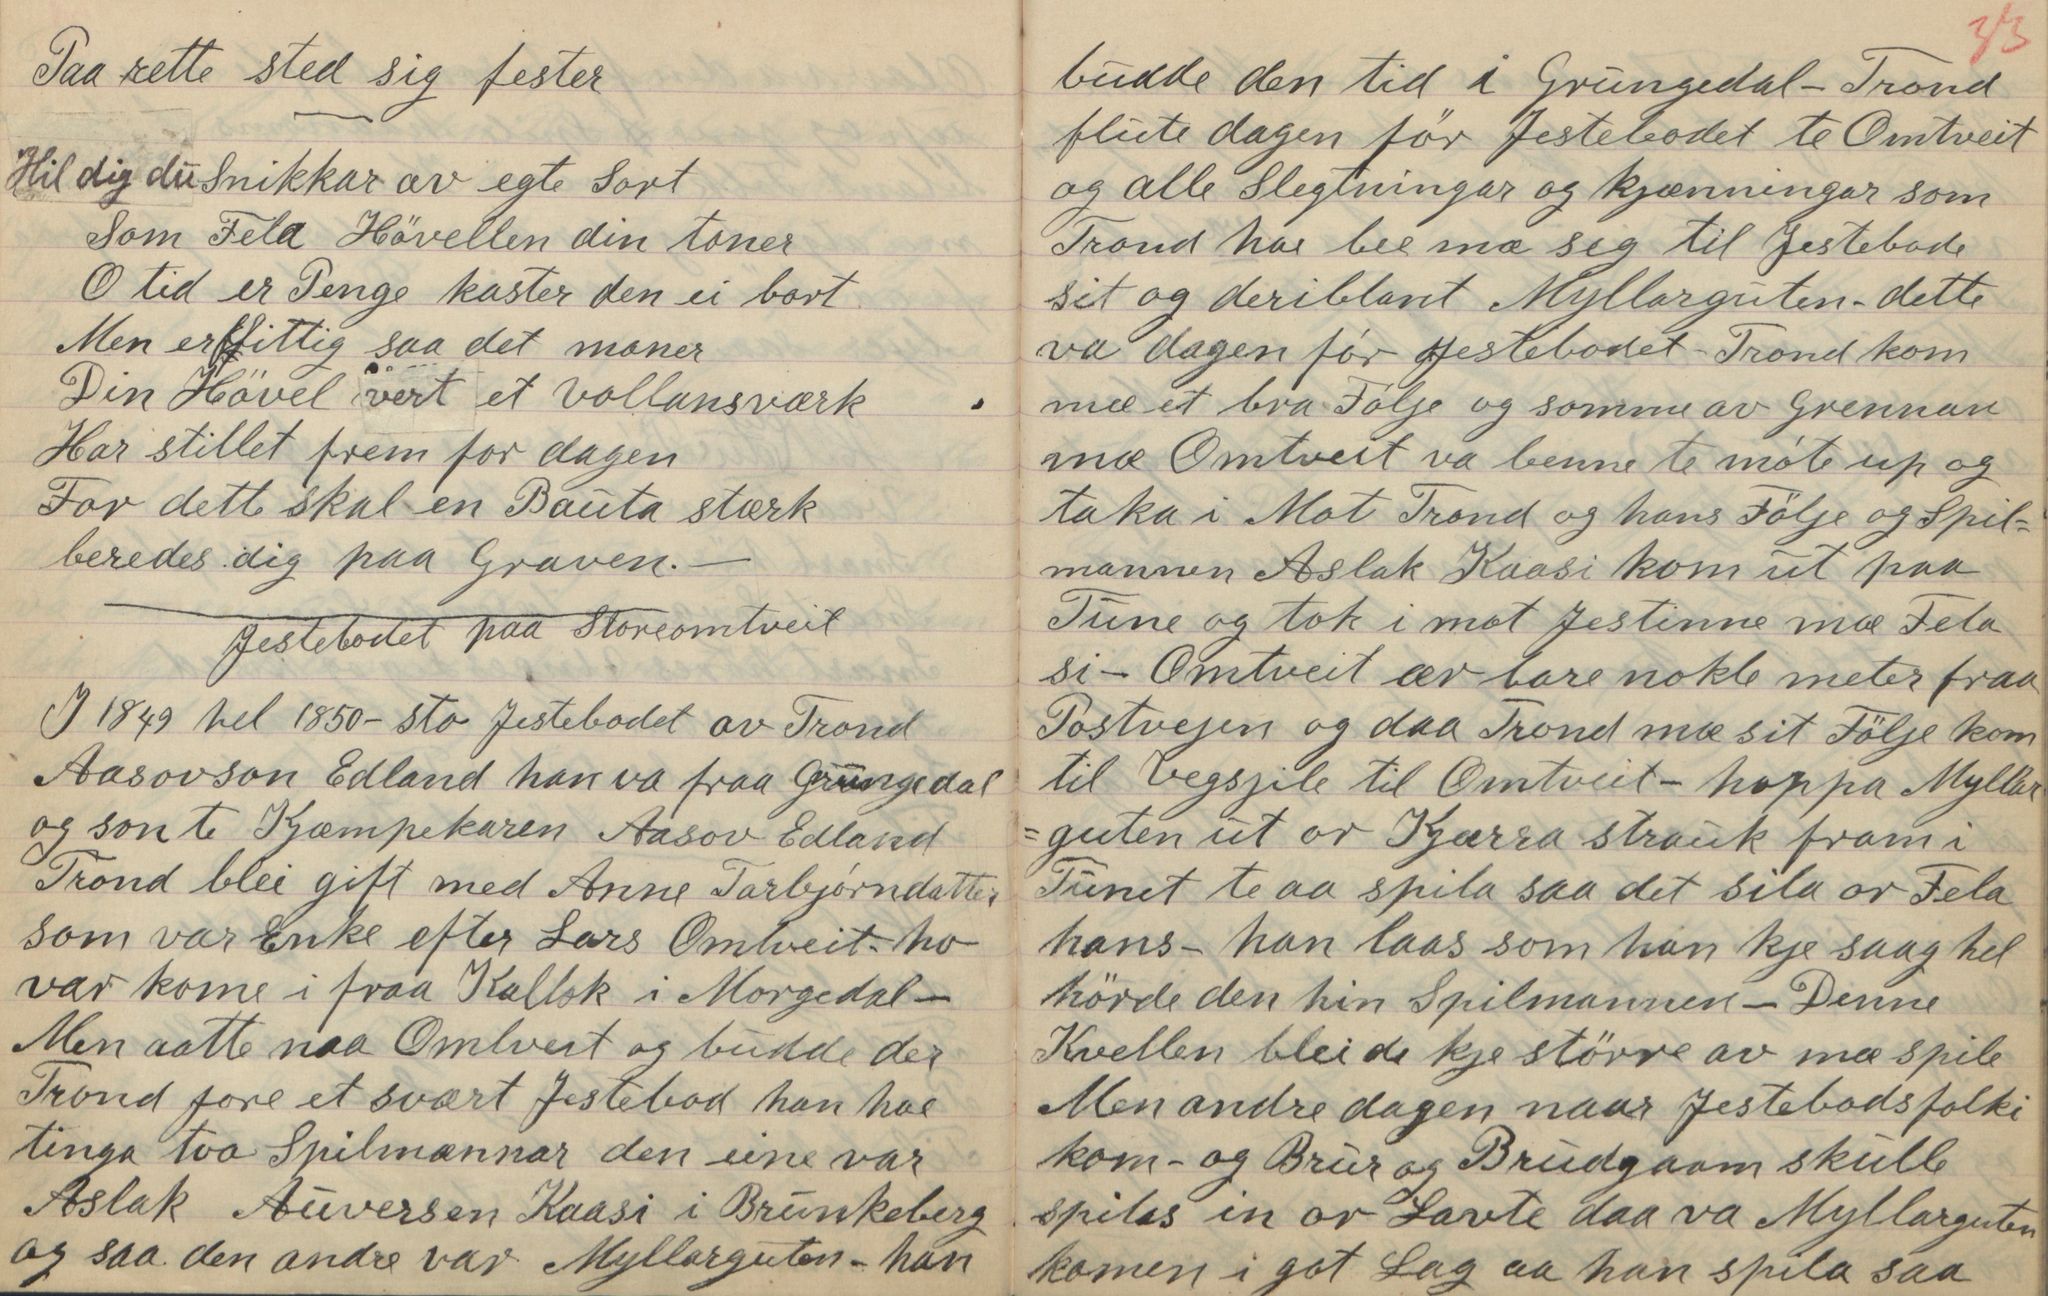 Paa rette sted sig fester
Hil dig du Snikkar av egte Sort
Som Fela Hövellen din toner
O tid er Penge kaster den ei bort
Men er flittig saa det moner
Din Hövel vert et vollansværk
Har stillet frem for dagen
For dette skal en Bauta stærk
beredes dig paa Graven. —
Jestebodet paa Storeomtveit
I 1849 hel 1850 - sto Jestebodet av Trond
Aasovson Edland han va fraa Grungedal
og son te Kjæmpekaren Aasov Edland
Trond blei gift med Anne Tarbjørndatter
som var Enke efter Lars Omtveit - ho
var kome i fraa Kallok i Morgedal —
Men aatte naa Omtveit og budde der
Trond fore et svært Jestebod han hae
tinga tvo Spilmænnar den eine var
Aslak Auversen Kaasi i Brunkeberg
og saa den andre var Myllarguten - han
33
budde den tid i Grungedal - Trond
flute dagen för Jestebodet te Omtveit
og alle Slegtningar og kjænningar som
Trond hae bee mæ sig til Jestebode
sit og deriblant Myllarguten - dette
va dagen för Jestebodet - Trond kom
mæ et bra Följe og somme av Grennan
mæ Omtveit va benne te möte up og
taka i Mot Trond og hans Följe og Spil=
mannen Aslak Kaasi kom ut paa
Tune og tok i mot Jestinne mæ Fela
si - Omtveit ær bare nokle meter fraa
Postvejen og daa Trond mæ sit Följe kom
til Vegsjile til Omtveit - hoppa Myllar
=guten ut or Kjærra strauk fram i
Tunet te aa spila saa det sila or Fela
hans - han laas som han kje saag hel
hörde den hin Spilmannen - Denne
Kvellen blei de kje större av mæ spile
Men andre dagen naar Jestebodsfolki
kom - og Brur og Brudgaam skulle
spiles in or Lavte daa va Myllarguten
komen i got Lag aa han spila saa